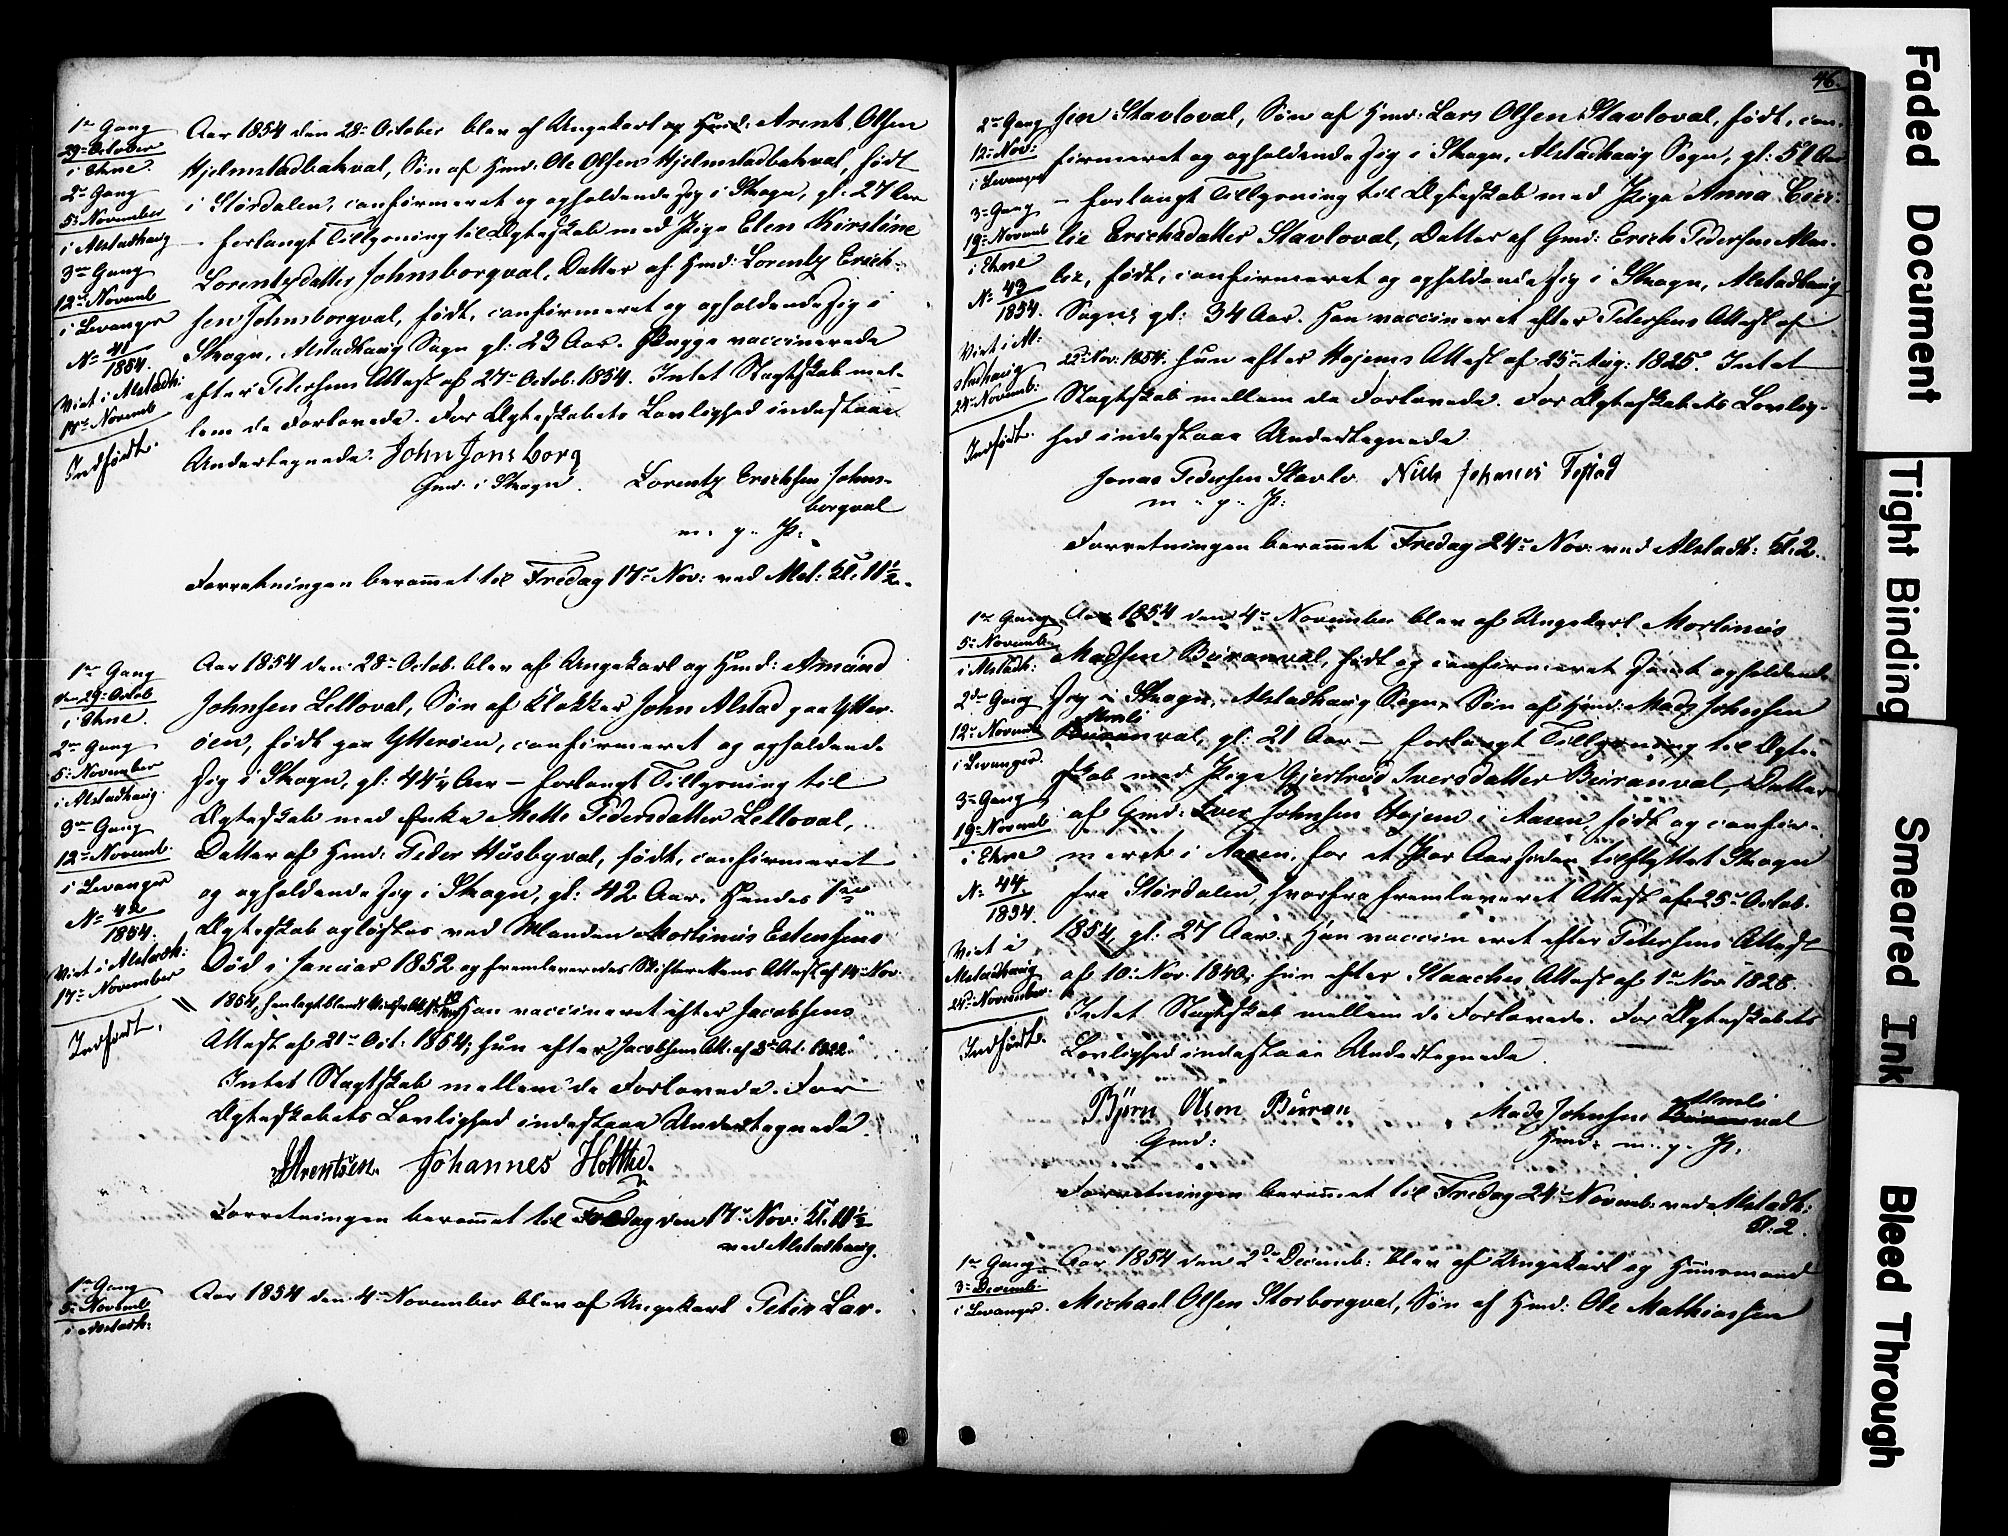 1ste Gang
29de October
i Ekne.
2den Gang
5te November
i Alstadhaug
3die Gang
12te Novemb
i Levanger
No 41
1854.
Viet i Alstadh:
17de Novemb
Indført.
Aar 1854 den 28de October blev af Ungekarl og Huusm: Arent Olsen
Hjelmstadbakval, Søn af Hmd: Ole Olsen Hjelmstadbakval, født
i Størdalen, confirmeret og opholdende sig i Skogn, gl: 27 Aar
– forlangt Tillysning til Ægteskab med Pige Elen Kirstine
Lorentzdatter Johnsborgval, Datter af Hmd: Lorentz Erich-
sen Johnsborgval, født, confirmeret og opholdende sig i
Skogn, Alstadhaug Sogn gl: 23 Aar. Begge vaccinerede
efter Petersens Attest af 27de Octob: 1854. Intet Slægtskab mel-
lem de Forlovede. For Ægteskabets Lovlighed indestaae
Undertegnede. John Jonsborg
Gmd: i Skogn. Lorentz Erichsen Johns-
borgval
m. p. P:
Forretningen berammet til Fredag 17de Nov: ved Alst: Kl: 11½.
1ste Gang
den 29de Octob
i Ekne.
2den Gang
5te November
i Alstadhaug.
3die Gang
12te Novemb.
i Levanger
No 42
1854.
Viet i Alstadh:
17de November
Indført.
Aar 1854 den 28de Octob. blev af Ungekarl og Hmd: Amund
Johnsen Lelloval, Søn af Klokker John Alstad paa Ytter-
øen, født paa Ytterøen, confirmeret og opholdende
sig i Skogn, gl: 44½ Aar – forlangt Tillysning til
Ægteskab med Enke Mette Pedersdatter Lelloval,
Datter af Hmd: Peder Husbyval, født, confirmeret
og opholdende sig i Skogn, gl: 42 Aar. Hendes 1ste
Ægteskab opløstes ved Manden Mortinus Estensens
Død i Januar 1852 og fremleveredes Skifterettens Attest af 14de Nov.
1854, henlagt blandt Han vaccineret efter Jacobsens
Attest af 21de Oct: 1854; hun efter Jacobsens Att: af 3de Oct: 1822.
Intet Slægtskab mellem de Forlovede. For
Ægteskabets Lovlighed indestaae Undertegnede.
Arentsen. Johannes Holthe.
Forretningen berammet til Fredag den 17de Nov: Kl: 11½
ved Alstadhaug.
1ste Gang
5te Novemb
i Alstadh:
Aar 1854 den 4de November blev af Ungekarl Peter Lar-
46.
2den Gang
12te Nov:
i Levanger
3die Gang
19de Novemb
i Ekne
No 43
1854.
Viet i Al-
stadhaug
24de Novemb:
Indført.
sen Stavloval, Søn af Hmd: Lars Olsen Stavloval, født, con-
firmeret og opholdende sig i Skogn, Alstadhaug Sogn, gl: 51 Aar
– forlangt Tillysning til Ægteskab med Pige Anna Ceci-
lie Erichsdatter Stavloval, Datter af Gmd: Erich Pedersen
født, confirmeret og opholdende sig i Skogn, Alstadhaug
Sogn, gl: 34 Aar. Han vaccineret efter Petersens Attest af
Nov: 1854. hun efter Højems Attest af 25de Aug: 1825. Intet
Slægtskab mellem de Forlovede. For Ægteskabets Lovlig-
hed indestaae Undertegnede
Jonas Pedersen Stavlo. Niels Johanes
m. p. P:
Forretningen berammet Fredag 24de Nov: ved Alstadh: Kl: 2.
1ste Gang
5te Novemb.
i Alstadh:
2den Gang
12te Novemb
i Levanger.
3die Gang
19de Novemb
i Ekne
No 44.
1854.
Viet i
Alstadhaug
24de November.
Indført.
Aar 1854 den 4de November blev af Ungekarl Mortinus
Madsen Buranval, født og confirmeret samt opholdende
sig i Skogn, Alstadhaug Sogn, Søn af Hmd: Mads Johnsen
Buranval, gl: 21 Aar – forlangt Tillysning til Ægte-
skab med Pige Gjertrud Iversdatter Buranval, Datter
af Gmd: Iver Johnsen Højem i Aasen, født og confir-
meret i Aasen, for et Par Aar siden tilflyttet Skogn
fra Størdalen, hvorfra fremleveret Attest af 25de Octob.
1854, gl: 27 Aar. Han vaccineret efter Petersens Attest
af 10de Nov. 1840; hun efter Staaches Attest af 1ste Nov 1828.
Intet Slægtskab mellem de Forlovede. For Ægteskabets
Lovlighed indestaae Undertegnede.
Bjørn Olsen Buran Mads Johnsen Buranval
Gmd: Hmd: m. p. P.
Forretningen berammet til Fredag 24de Novemb: ved Alstadh:
Kl: 2.
1ste Gang
3die Decemb:
i Levanger.
Aar 1854 den 2den Decemb: blev af Ungekarl og Huusmand
Michael Olsen Storborgval, Søn af Hmd: Ole Mathiassen
Faded Document
Tight Binding
Smeared Ink
Bleed Through